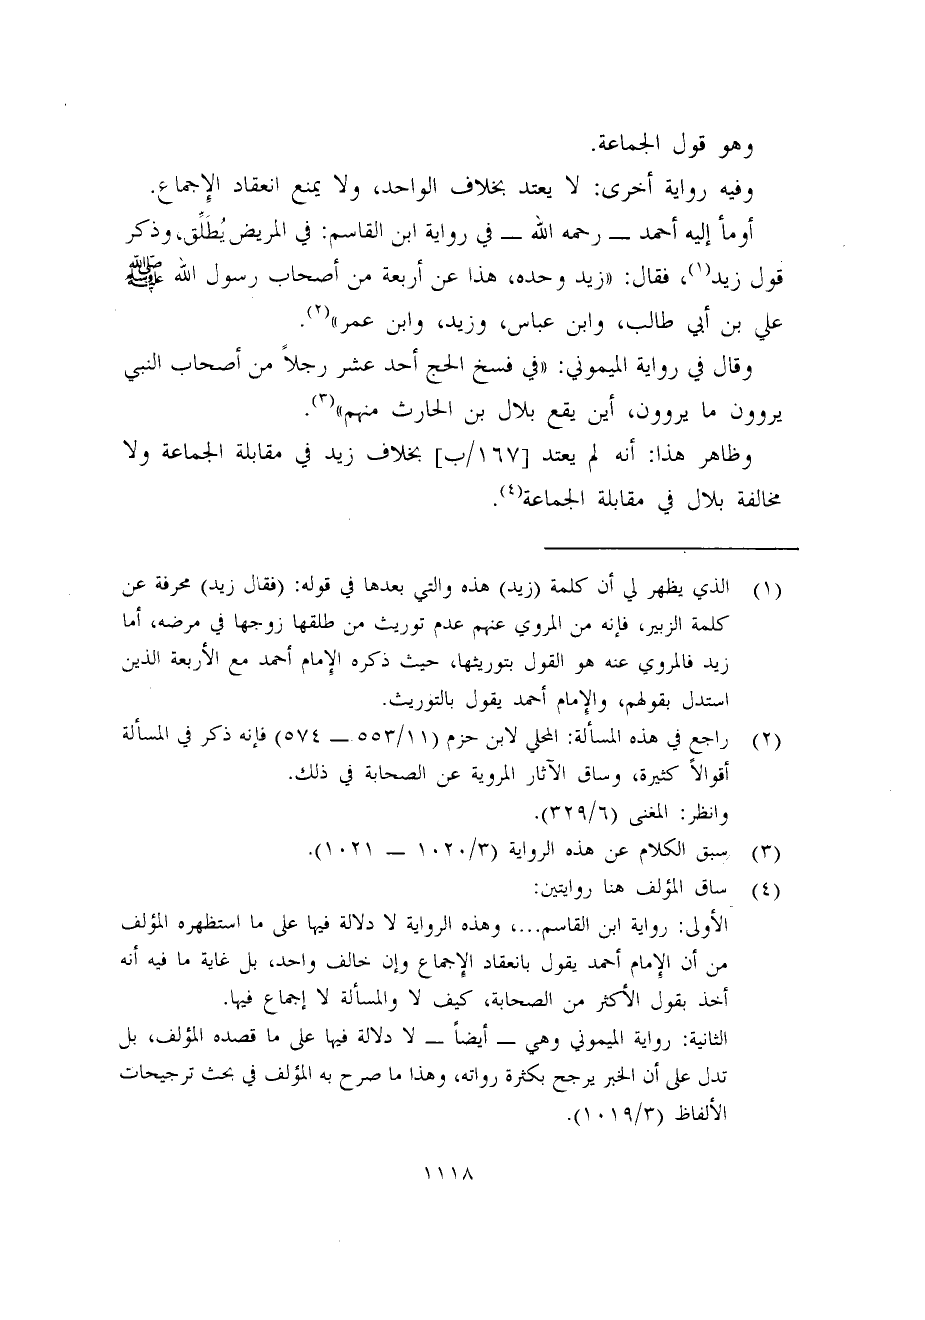 وهو قول الجماعة.
وفيه رواية أخرى: لا يعتد بخلاف الواحد، ولا يمنع انعقاد الإجماع.
أومأ إليه أحمد ــ رحمه الله ــ في رواية ابن القاسم: في المريض يُطَلِّق، وذكر
قول زيد(١)، فقال: «زيد وحده، هذا عن أربعة من أصحاب رسول الله ﷺ
علي بن أبي طالب، وابن عباس، وزيد، وابن عمر»(٢).
وقال في رواية الميموني: «في فسخ الحج أحد عشر رجلاً من أصحاب النبي
يروون ما يروون، أين يقع بلال بن الحارث منهم»(٣).
وظاهر هذا: أنه لم يعتد [١٦٧/ب] بخلاف زيد في مقابلة الجماعة ولا
مخالفة بلال في مقابلة الجماعة(٤).
(١) الذي يظهر لي أن كلمة (زيد) هذه والتي بعدها في قوله: (فقال زيد) محرفة عن
كلمة الزبير، فإنه من المروي عنهم عدم توريث من طلقها زوجها في مرضه، أما
زيد فالمروي عنه هو القول بتوريثها، حيث ذكره الإمام أحمد مع الأربعة الذين
استدل بقولهم، والإمام أحمد يقول بالتوريث.
(٢) راجع في هذه المسألة: المحلي لابن حزم (٥٥٣/١١ ــ ٥٧٤) فإنه ذكر في المسألة
أقوالاً كثيرة، وساق الآثار المروية عن الصحابة في ذلك.
وانظر: المغنى (٣٢٩/٦).
(٣) سبق الكلام عن هذه الرواية (١٠٢٠/٣ ــ ١٠٢١).
(٤) ساق المؤلف هنا روايتين:
الأولى: رواية ابن القاسم...، وهذه الرواية لا دلالة فيها على ما استظهره المؤلف
من أن الإمام أحمد يقول بانعقاد الإجماع وإن خالف واحد، بل غاية ما فيه أنه
أخذ بقول الأكثر من الصحابة، كيف لا والمسألة لا إجماع فيها.
الثانية: رواية الميموني وهي ــ أيضاً ــ لا دلالة فيها على ما قصده المؤلف، بل
تدل على أن الخبر يرجح بكثرة رواته، وهذا ما صرح به المؤلف في بحث ترجيحات
الألفاظ (١٠١٩/٣).
١١١٨